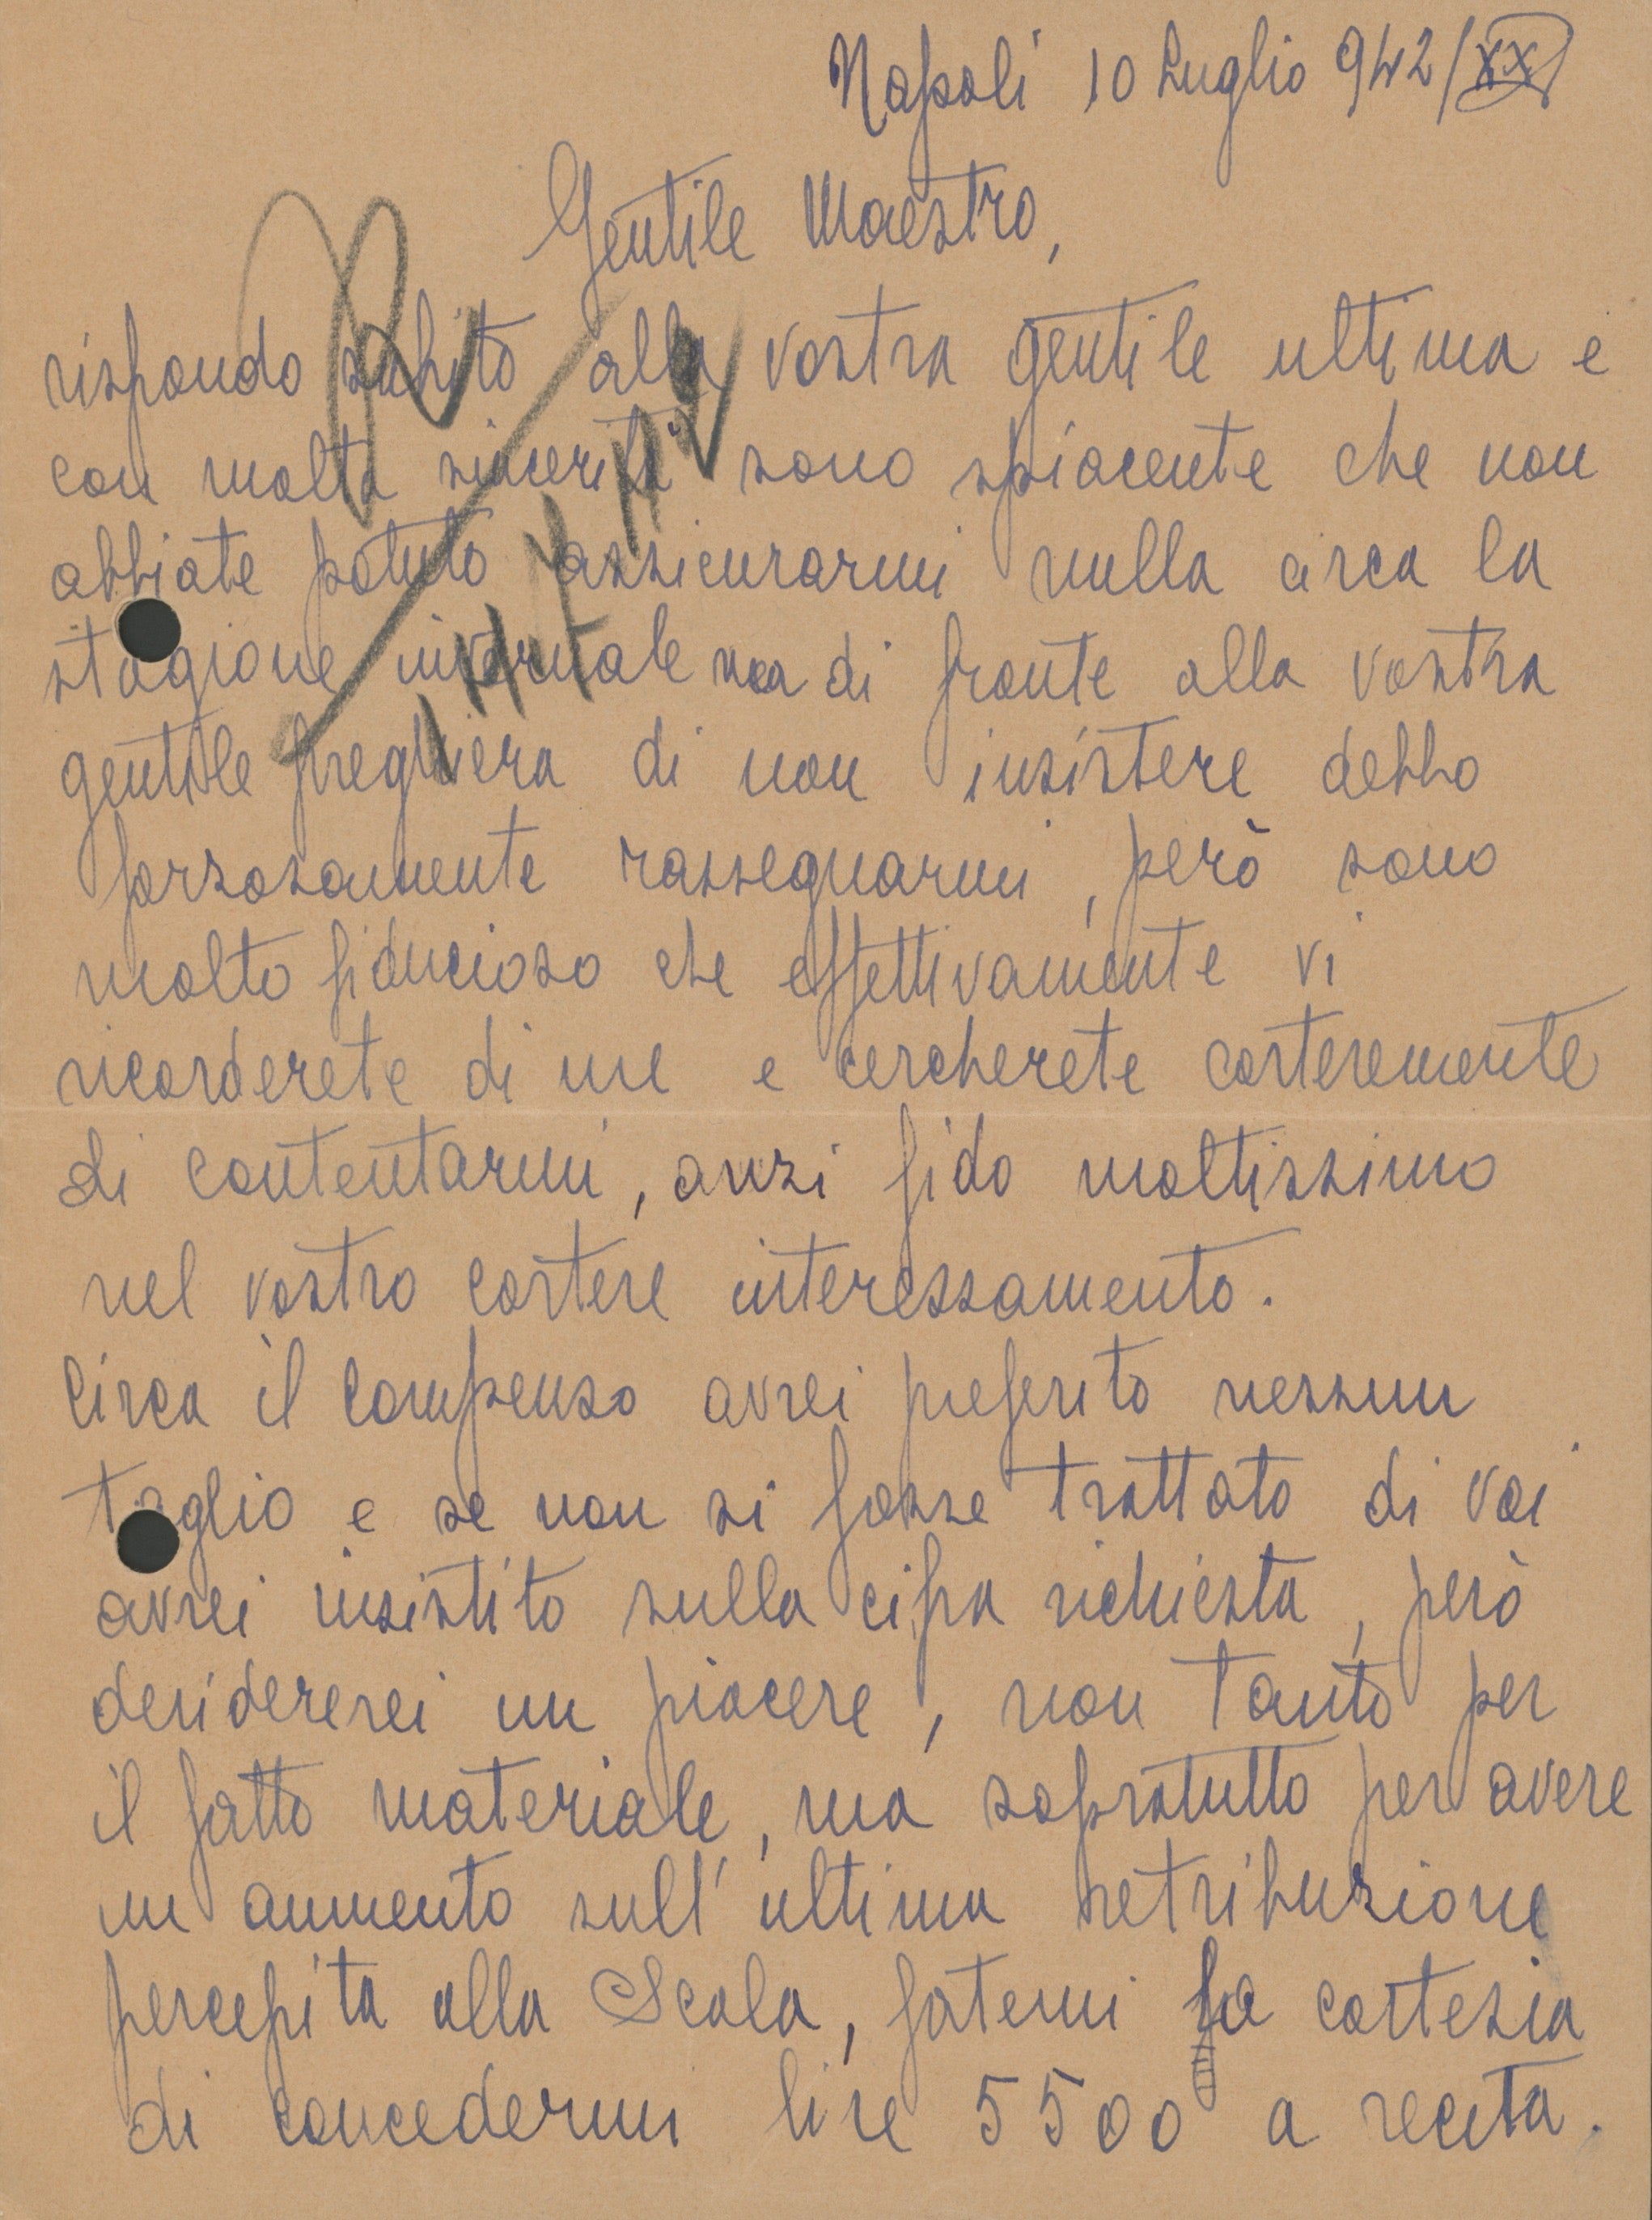 Napoli 10 Luglio 942/XX
Gentile Maestro,
rispondo subito alla vostra gentile ultima e
con molta sincerità sono spiacente che non
abbiate potuto assicurarmi nulla circa la
stagione invernale ma di fronte alla vostra
gentile preghiera di non insistere debbo
forzosamente rassegnarmi, però sono
molto fiducioso che effettivamente vi
ricorderete di me e cercherete cortesemente
di contentarmi, anzi fido moltissimo
nel vostro cortese interessamento.
Circa il compenso avrei preferito nessun
taglio e se non si fosse trattato di voi
avrei insistito sulla cifra richiesta, però
desidererei un piacere, non tanto per
il fatto materiale, ma sopratutto per avere
un aumento sull'ultima retribuzione
percepita alla Scala, fatemi la cortesia
di concedermi lire 5500 a recita.